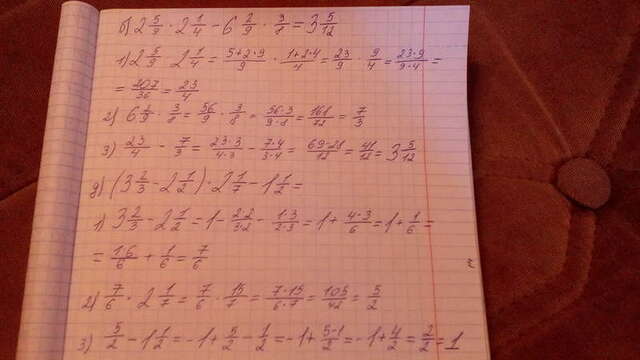 б) 2 5/9 · 2 1/4 − 6 2/9 · 3/8 = 3 5/12
1) 2 5/9 · 2 1/4 = (5+2·9)/9 · (1+2·4)/4 = 23/9 · 9/4 = (23·9)/(9·4) =
= 207/36 = 23/4
2) 6 2/9 · 3/8 = 56/9 · 3/8 = (56·3)/(9·8) = 168/72 = 7/3
3) 23/4 − 7/3 = (23·3)/(4·3) − (7·4)/(3·4) = (69-28)/12 = 41/12 = 3 5/12
д) (3 2/3 − 2 1/2) · 2 1/7 − 1 1/2 =
1) 3 2/3 − 2 1/2 = 1 − (2·2)/(3·2) − (1·3)/(2·3) = 1 + (4-3)/6 = 1 + 1/6 =
= 1·6/6 + 1/6 = 7/6
2) 7/6 · 2 1/7 = 7/6 · 15/7 = (7·15)/(6·7) = 105/42 = 5/2
3) 5/2 − 1 1/2 = −1 + 5/2 − 1/2 = −1 + (5-1)/2 = −1 + 4/2 = 2/2 = 1